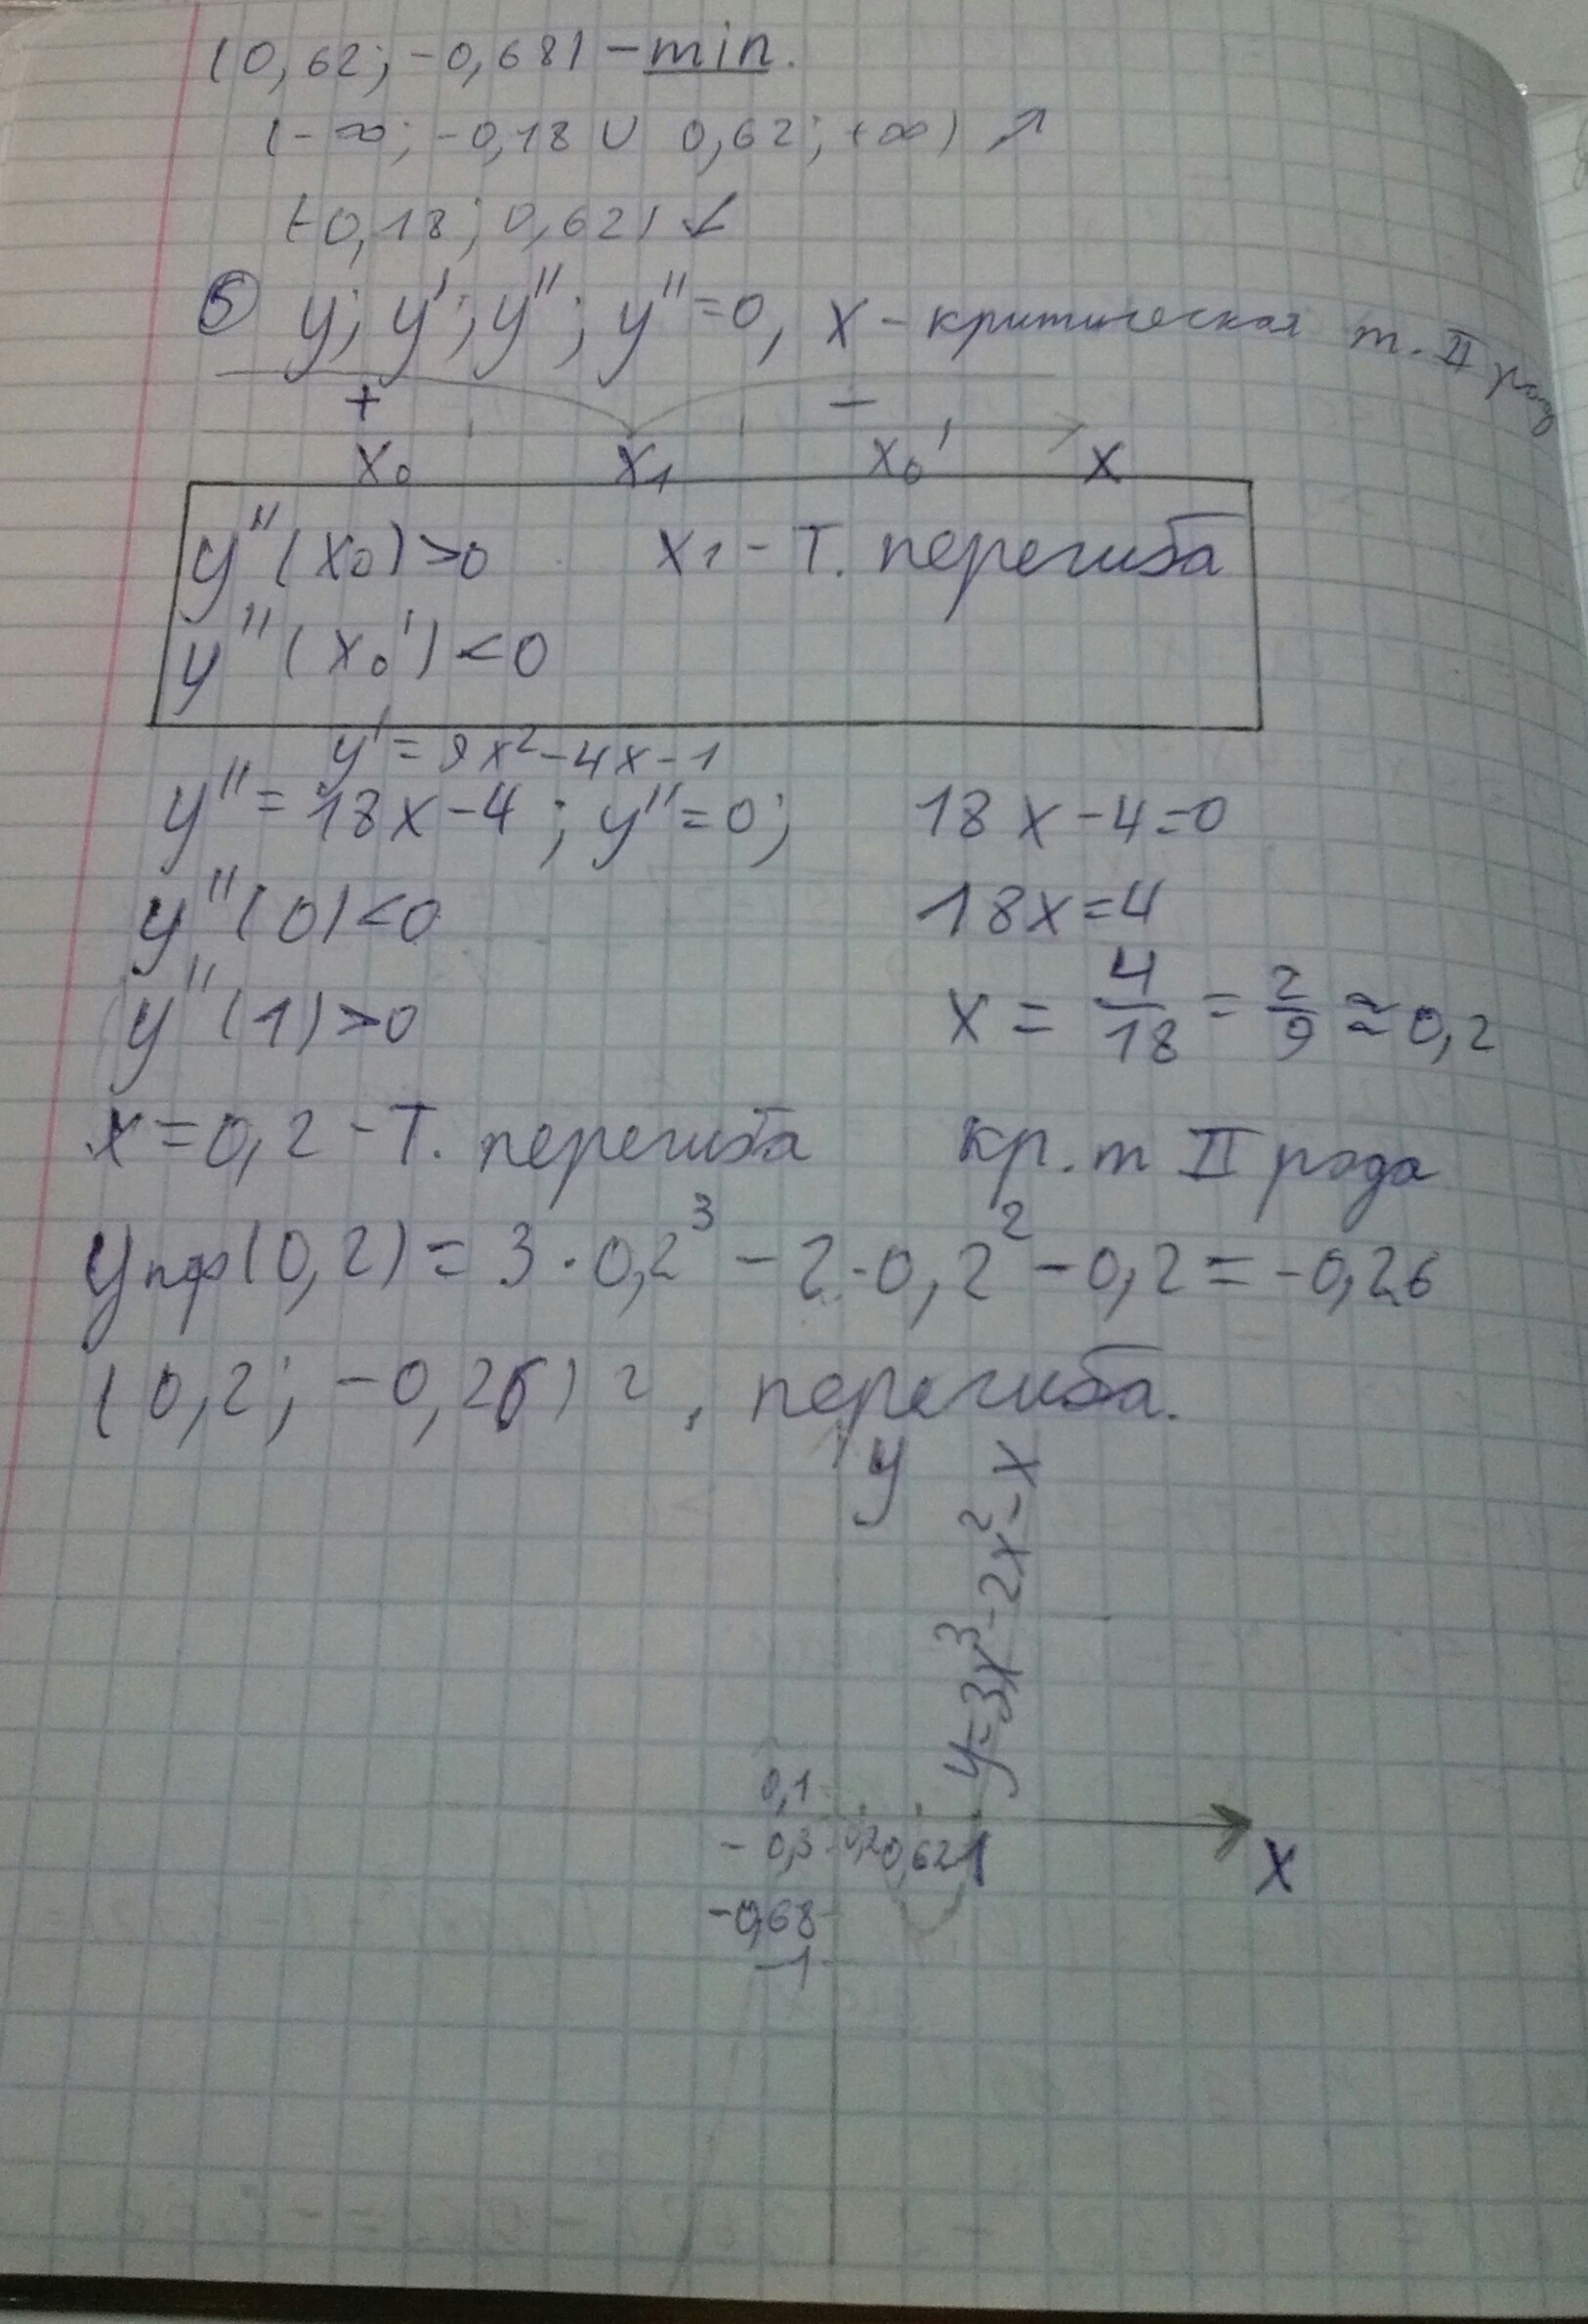 (0,62; -0,68) - min.
(-∞; -0,18 ∪ 0,62; +∞) ↗
(-0,18; 0,62) ↙
⑤ y; y'; y''; y''=0, x - критическая т. II рода
+ −
x₀ x₁ x₀' x
y''(x₀)>0 x₁ - т. перегиба
y''(x₀')<0
y' = 9x²-4x-1
y'' = 18x-4; y''=0; 18x-4=0
y''(0)<0 18x=4
y''(1)>0 x = 4/18 = 2/9 ≈ 0,2
x=0,2 - т. перегиба кр. т II рода
yпф(0,2) = 3·0,2³ - 2·0,2² - 0,2 = -0,26
(0,2; -0,26) , перегиба.
y
y=3x³-2x²-x
0,1
-0,3 0,2 0,62 1
x
-0,68
-1